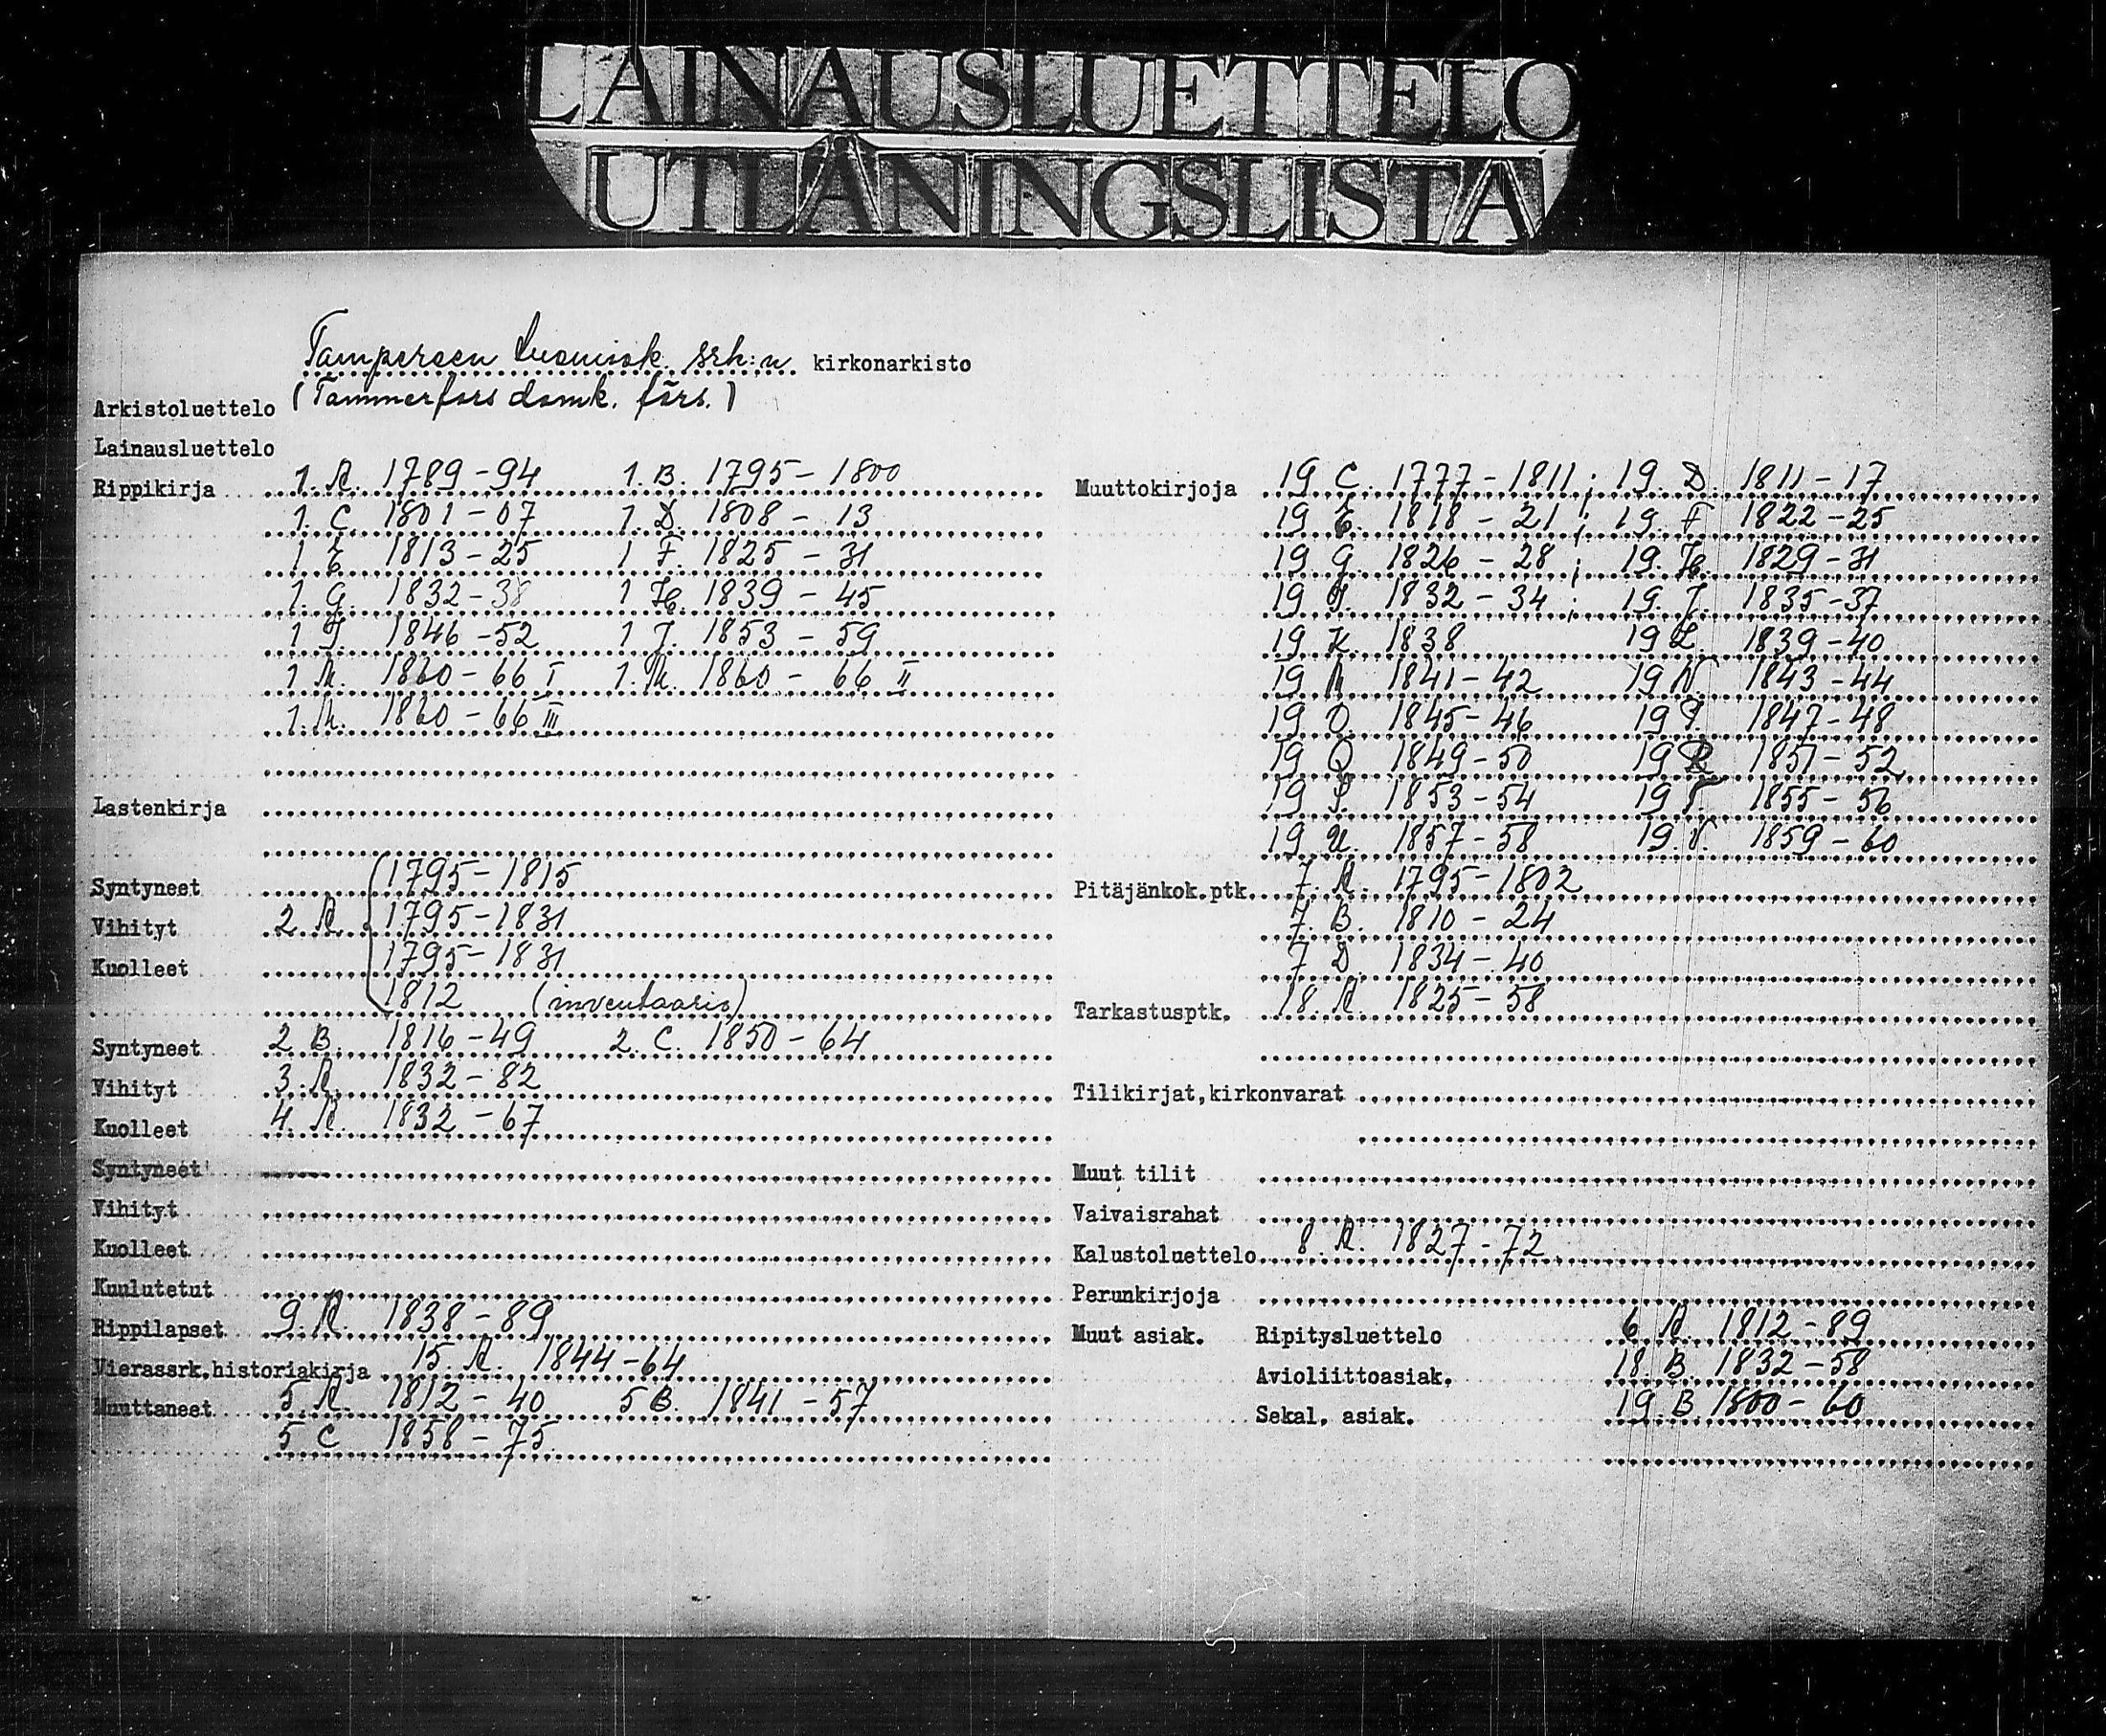 LAINAUSLUETTELO
UTLÅNINGSLISTA
Tampereen tuomiok. srh:n kirkonarkisto
Arkistoluettelo (Tammerfors domk. förs.)
Lainausluettelo
Rippikirja 1. A. 1789-94 1. B. 1795-1800
1. C. 1801-07 1. D. 1808-13
1 E 1813-25 1 F. 1825-31
1. G. 1832-38 1 H. 1839-45
1 I. 1846-52 1 J. 1853-59
1 M. 1860-66 I 1. M. 1860-66 II
1. M. 1860-66 III
Lastenkirja
Syntyneet 1795-1815
Vihityt 2 A 1795-1831
Kuolleet 1795-1831
1812 (inventaario)
Syntyneet 2 B. 1816-49 2. C. 1850-64
Vihityt 3. A. 1832-82
Kuolleet 4. A. 1832-67
Syntyneet
Vihityt
Kuolleet
Kuulutetut
Rippilapset 9. A. 1838-89
Vierassrk.historiakirja 15. A. 1844-64
Muuttaneet 5. A. 1812-40 5 B. 1841-57
5 C 1858-75
Muuttokirjoja 19 C. 1777-1811; 19. D. 1811-17
19 E. 1818-21; 19. F 1822-25
19 G. 1826-28; 19. H. 1829-31
19 I. 1832-34; 19. J. 1835-37
19 K 1838 19 L. 1839-40
19 M 1841-42 19 N. 1843-44
19 O. 1845-46 19 P. 1847-48
19 Q 1849-50 19 R 1851-52
19 S. 1853-54 19 T. 1855-56
19 U. 1857-58 19. V. 1859-60
Pitäjänkok.ptk. 7. A. 1795-1802
7. B. 1810-24
7 D. 1834-40
Tarkastusptk. 18. A. 1825-58
Tilikirjat,kirkonvarat
Muut tilit
Vaivaisrahat
Kalustoluettelo 8. A. 1827-72
Perunkirjoja
Muut asiak. Ripitysluettelo 6 A. 1812-89
Avioliittoasiak. 18. B. 1832-58
Sekal. asiak. 19. B. 1800-60